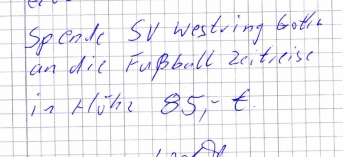 Spende SV Westring Gotha
an die Fußball Zeitreise
in Höhe 85,- €.